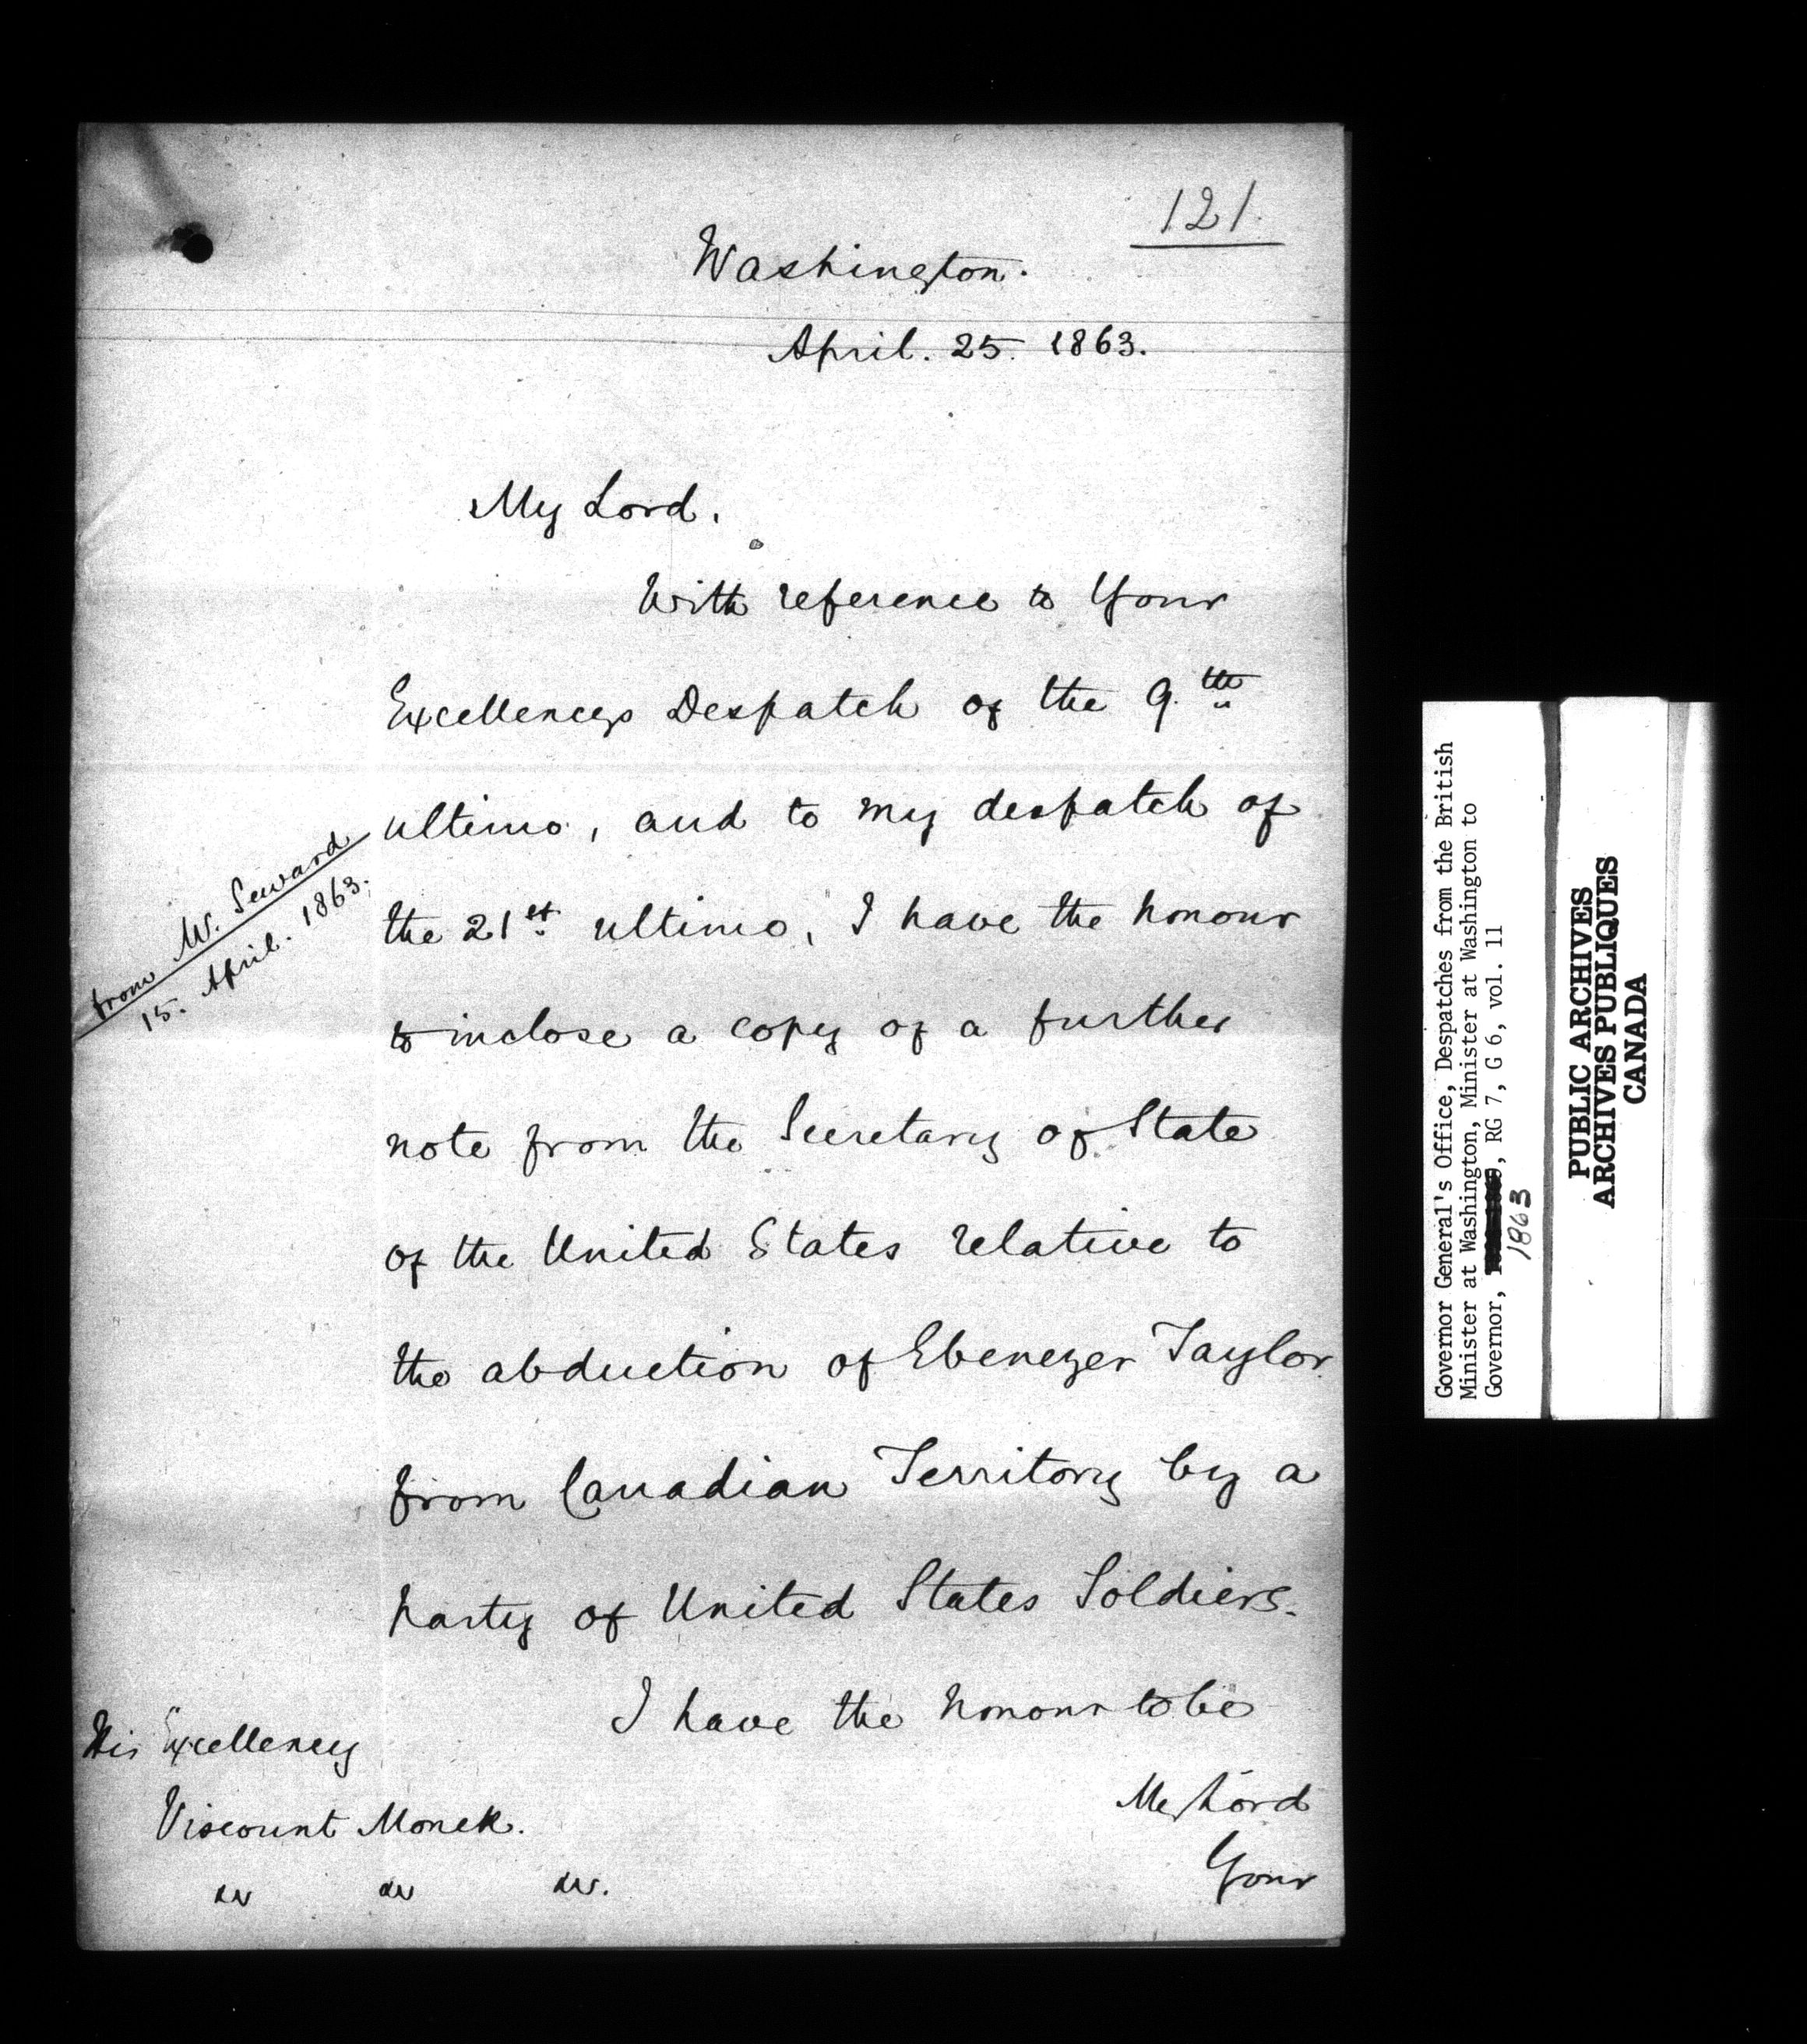 121
Washington.
April. 25. 1863.
My Lord.
With reference to Your
Excellencys Despatch of the 9.th
ultimo, and to my despatch of
from Mr. Seward
15. April. 1863.
the 21st ultimo, I have the honour
to inclose a copy of a further
note from the Secretary of State
of the United States relative to
the abduction of Ebenezer Taylor
from Canadian Territory by a
party of United States Soldiers.
I have the honour to be
My Lord
Your
His Excellency
Viscount Monck.
&c &c &c.
Governor General's Office, Despatches from the British
Minister at Washington, Minister at Washington to
Governor, , RG 7, G 6, vol. 11
1863
PUBLIC ARCHIVES
ARCHIVES PUBLIQUES
CANADA